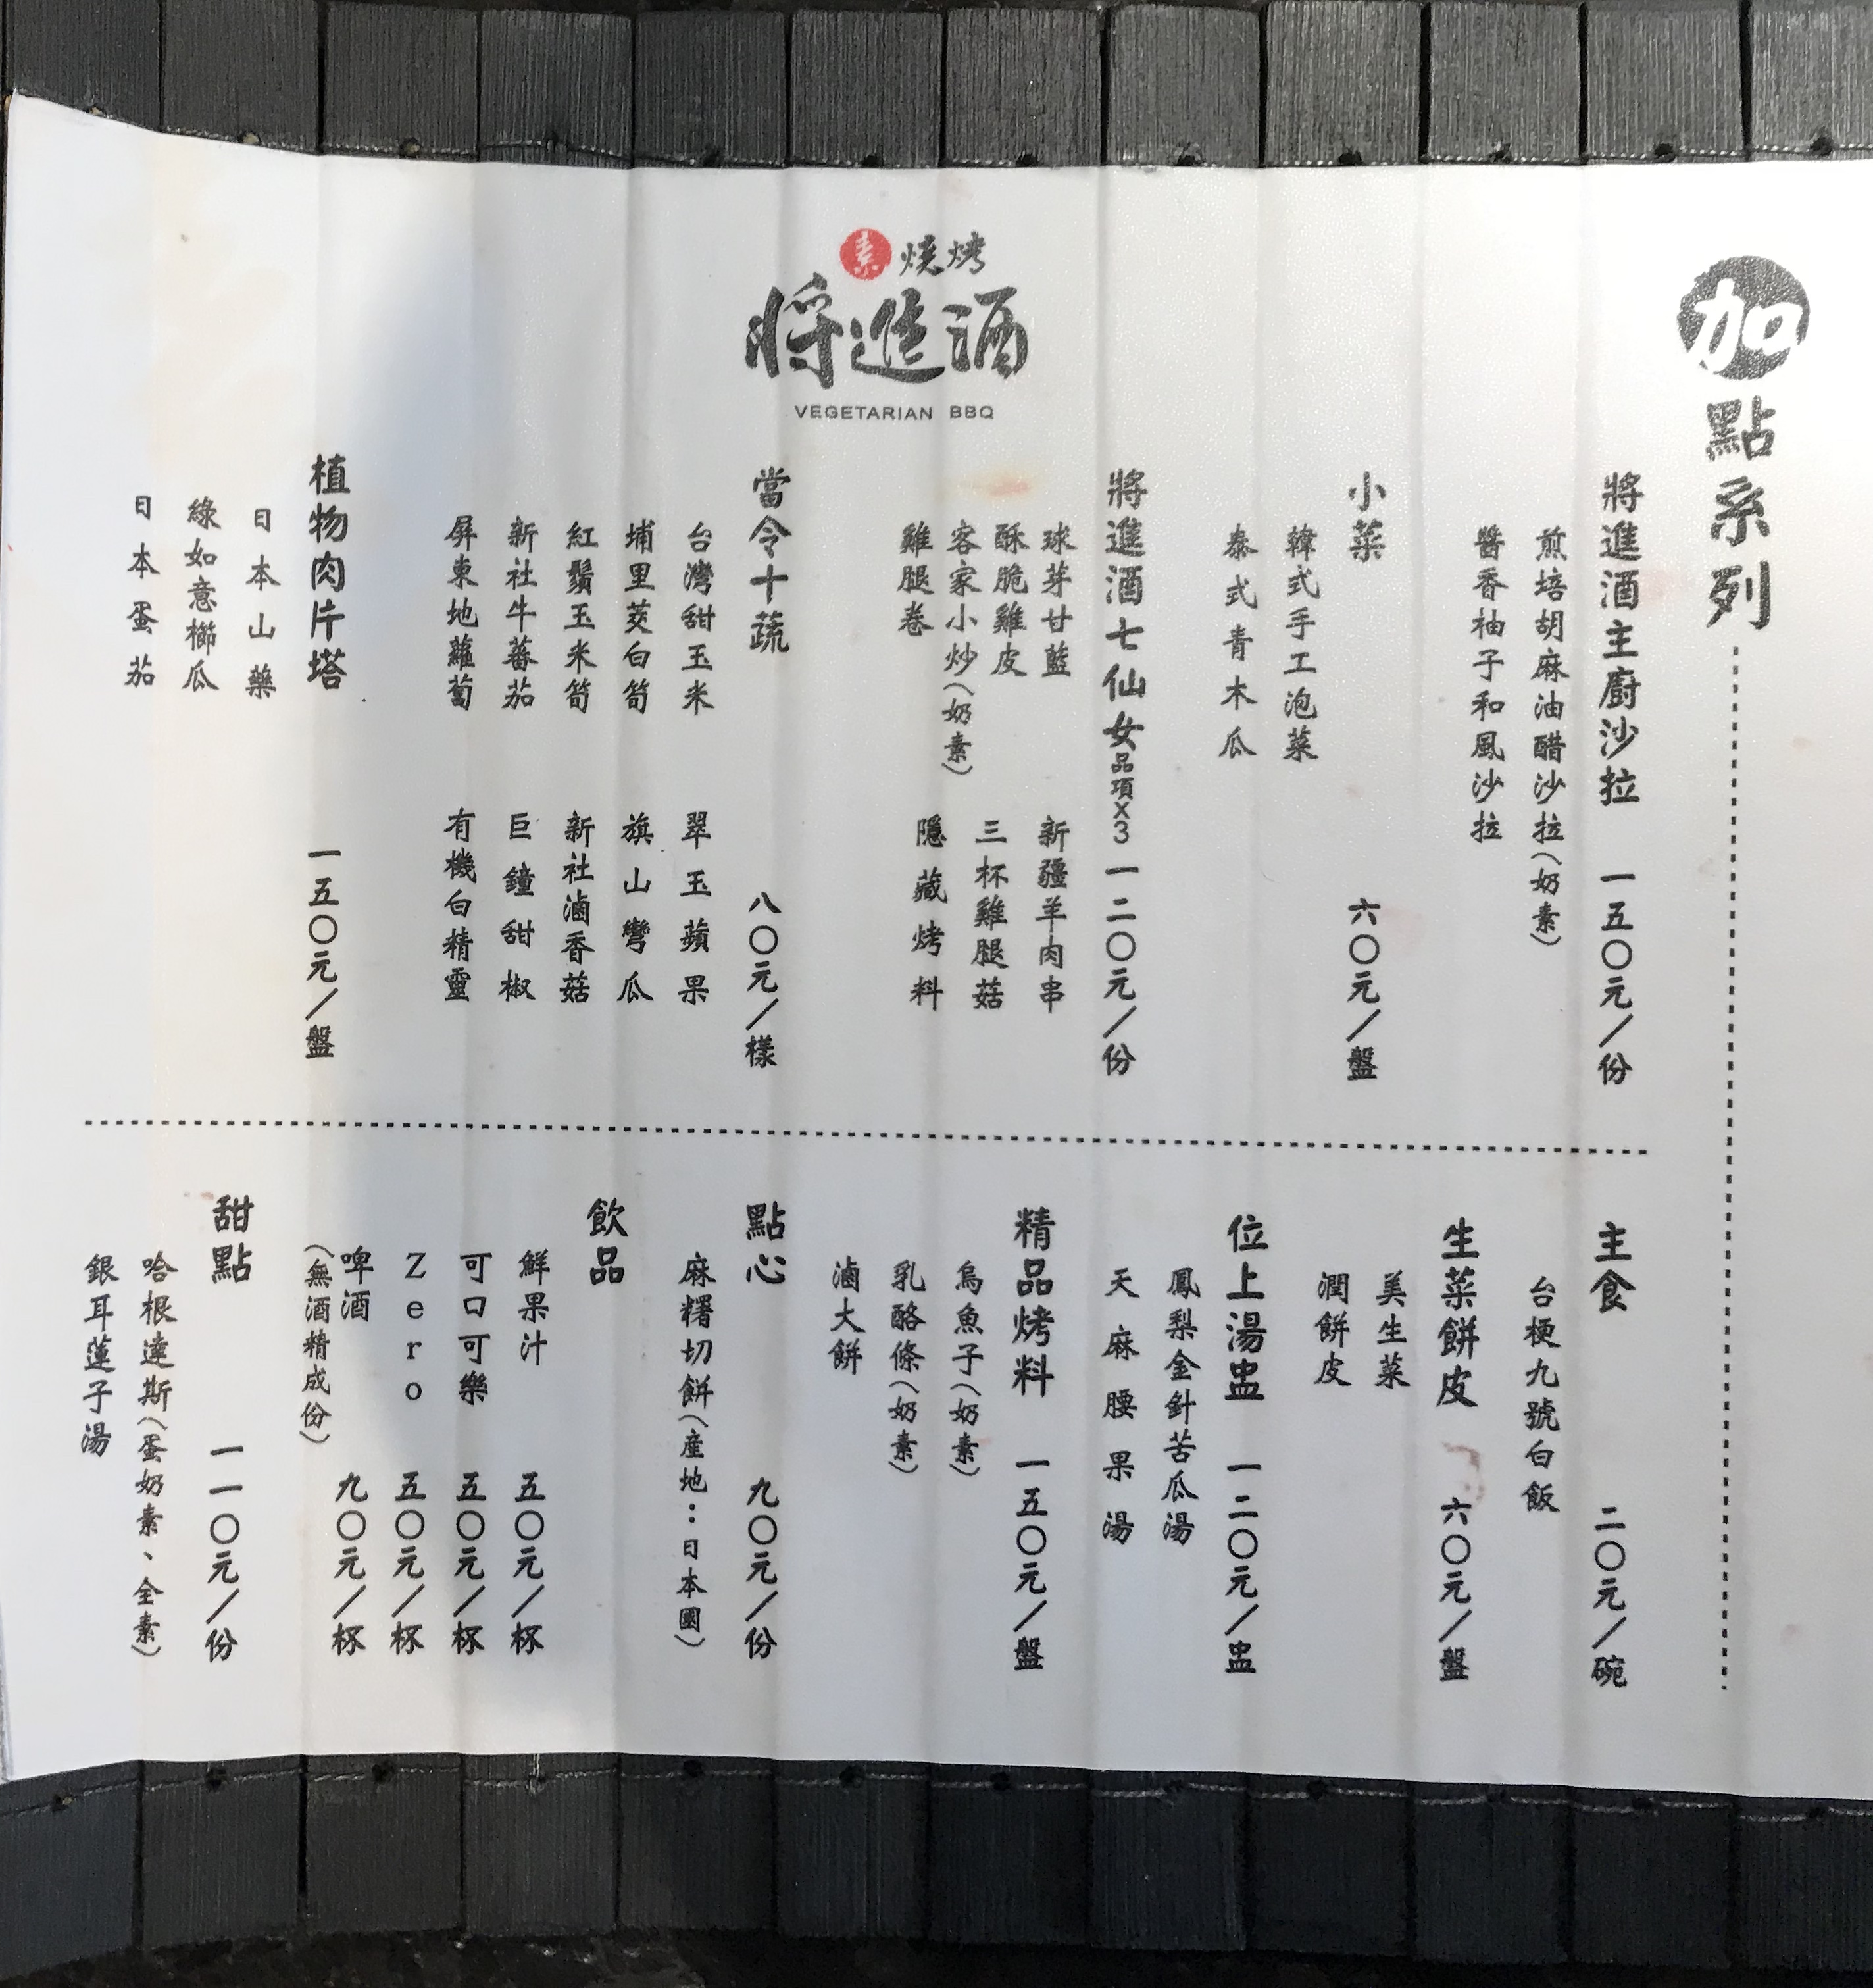 加點系列
將進酒主廚沙拉 一五〇元/份
煎培胡麻油醋沙拉(奶素)
醬香柚子和風沙拉
小菜 六〇元/盤
韓式手工泡菜
泰式青木瓜
將進酒七仙女品項x3 一二〇元/份
球芽甘藍 新疆羊肉串
酥脆雞皮 三杯雞腿菇
客家小炒(奶素)
雞腿卷 隱藏烤料
素燒烤
將進酒
VEGETARIAN BBQ
當令十蔬 八〇元/樣
台灣甜玉米 翠玉蘋果
埔里茭白筍 旗山彎瓜
紅鬚玉米筍 新社滷香菇
新社牛蕃茄 巨鐘甜椒
屏東地蘿蔔 有機白精靈
植物肉片塔 一五〇元/盤
日本山藥
綠如意櫛瓜
日本蛋茄
主食 二〇元/碗
台梗九號白飯
生菜餅皮 六〇元/盤
美生菜
潤餅皮
位上湯盅 一二〇元/盅
鳳梨金針苦瓜湯
天麻腰果湯
精品烤料 一五〇元/盤
烏魚子(奶素)
乳酪條(奶素)
滷大餅
點心 九〇元/份
麻糬切餅(産地:日本國)
飲品
鮮果汁 五〇元/杯
可口可樂 五〇元/杯
Zero 五〇元/杯
啤酒 九〇元/杯
(無酒精成份)
甜點 一一〇元/份
哈根達斯(蛋奶素、全素)
銀耳蓮子湯